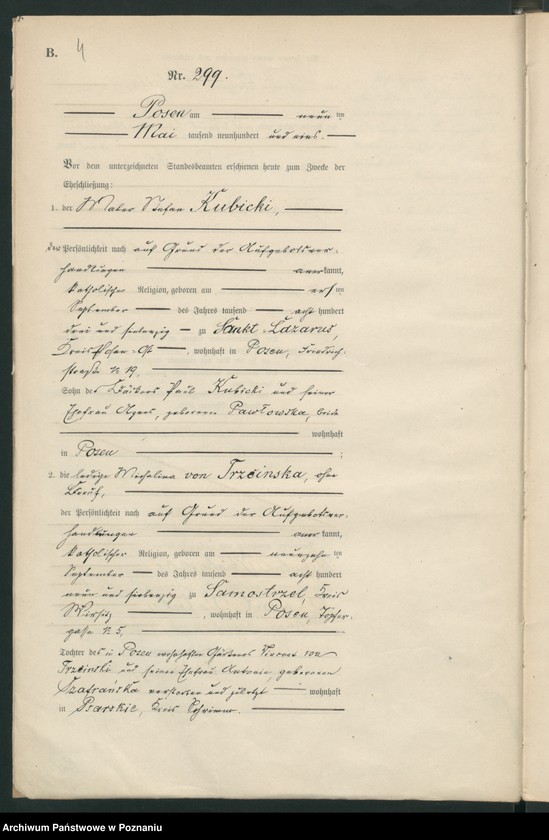 B. 4
Nr. 299.
Posen am neun ten
Mai tausend neunhundert und eins.
Vor dem unterzeichneten Standesbeamten erschienen heute zum Zwecke der
Eheschließung:
1. der Maler Stefan Kubicki,
der Persönlichkeit nach auf Grund der Aufgebotsver-
handlungen anerkannt,
katholischer Religion, geboren am ersten
September des Jahres tausend acht hundert
drei und siebenzig zu Sankt Lazarus,
Kreis Posen-Ost, wohnhaft in Posen, Friedrich-
straße N 19,
Sohn des Paul Kubicki und seiner
Ehefrau Agnes, geborenen Pawlowska, beide
wohnhaft
in Posen ;
2. die ledige Michalina von Trzcinska, ohne
Beruf,
der Persönlichkeit nach auf Grund der Aufgebotsver-
handlungen anerkannt,
katholischer Religion, geboren am neunzehn ten
September des Jahres tausend acht hundert
neun und siebenzig zu Samostrzel, Kreis
Wirsitz, wohnhaft in Posen, Töpfer-
gasse N 5,
Tochter des in Posen wohnhaften Gärtners Vincent von
Trzcinski und seiner Ehefrau Antonie, geborenen
Szafrańska verstorben und zuletzt wohnhaft
in Psarskie, Kreis Schrimm.
Archiwum Państwowe w Poznaniu